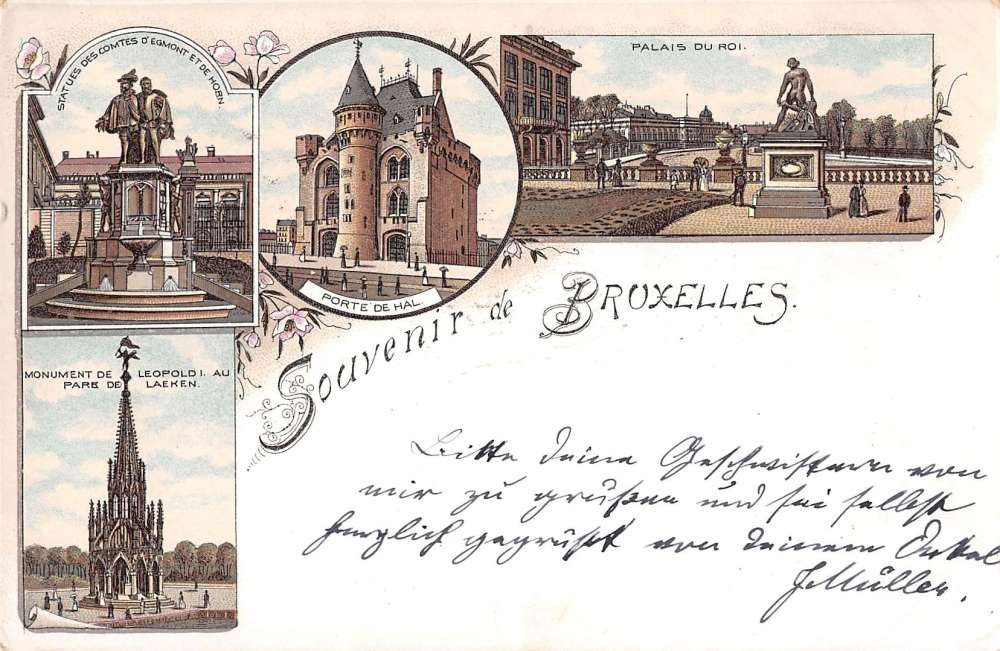 STATUES DES COMTES D'EGMONT ET DE HORN.
PORTE DE HAL.
PALAIS DU ROI.
MONUMENT DE LEOPOLD I. AU
PARB DE LAEKEN.
Souvenir de BRUXELLES.
Bitte deine Geschwistern von
mir zu grüßen und sei selbst
herzlich gegrüßt von deinem Onkel
J Müller.